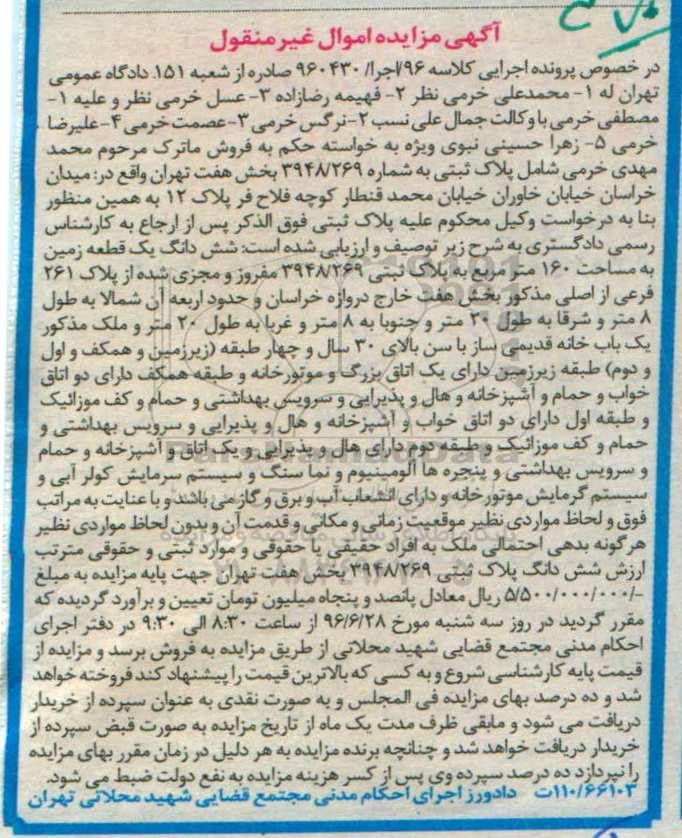 آگهی مزایده اموال غیر منقول
در خصوص پرونده اجرایی کلاسه ۹۶/اجرا/ ۹۶۰۴۳۰ صادره از شعبه ۱۵۱ دادگاه عمومی
تهران له ۱- محمدعلی خرمی نظر ۲- فهیمه رضازاده ۳- عسل خرمی نظر و علیه ۱-
مصطفی خرمی با وکالت جمال علی نسب ۲- نرگس خرمی ۳- عصمت خرمی ۴- علیرضا
خرمی ۵- زهرا حسینی نبوی ویژه به خواسته حکم به فروش ماترک مرحوم محمد
مهدی خرمی شامل پلاک ثبتی به شماره ۳۹۴۸/۲۶۹ بخش هفت تهران واقع در: میدان
خراسان خیابان خاوران خیابان محمد قنطار کوچه فلاح فر پلاک ۱۲ به همین منظور
بنا به درخواست وکیل محکوم علیه پلاک ثبتی فوق الذکر پس از ارجاع به کارشناس
رسمی دادگستری به شرح زیر توصیف و ارزیابی شده است: شش دانگ یک قطعه زمین
به مساحت ۱۶۰ متر مربع به پلاک ثبتی ۳۹۴۸/۲۶۹ مفروز و مجزی شده از پلاک ۲۶۱
فرعی از اصلی مذکور بخش هفت خارج دروازه خراسان و حدود اربعه آن شمالا به طول
۸ متر و شرقا به طول ۲۰ متر و جنوبا به ۸ متر و غربا به طول ۲۰ متر و ملک مذکور
یک باب خانه قدیمی ساز با سن بالای ۳۰ سال و چهار طبقه (زیرزمین و همکف و اول
و دوم) طبقه زیرزمین دارای یک اتاق بزرگ و موتورخانه و طبقه همکف دارای دو اتاق
خواب و حمام و آشپزخانه و هال و پذیرایی و سرویس بهداشتی و حمام و کف موزائیک
و طبقه اول دارای دو اتاق خواب و آشپزخانه و هال و پذیرایی و سرویس بهداشتی و
حمام و کف موزائیک و طبقه دوم دارای هال و پذیرایی و یک اتاق و آشپزخانه و حمام
و سرویس بهداشتی و پنجره ها آلومینیوم و نما سنگ و سیستم سرمایش کولر آبی و
سیستم گرمایش موتورخانه و دارای انشعاب آب و برق و گاز می باشد و با عنایت به مراتب
فوق و لحاظ مواردی نظیر موقعیت زمانی و مکانی و قدمت آن و بدون لحاظ مواردی نظیر
هر گونه بدهی احتمالی ملک به افراد حقیقی یا حقوقی و موارد ثبتی و حقوقی مترتب
ارزش شش دانگ پلاک ثبتی ۳۹۴۸/۲۶۹ بخش هفت تهران جهت پایه مزایده به مبلغ
۵/۵۰۰/۰۰۰/۰۰۰/- ریال معادل پانصد و پنجاه میلیون تومان تعیین و برآورد گردیده که
مقرر گردید در روز سه شنبه مورخ ۹۶/۶/۲۸ از ساعت ۸:۳۰ الی ۹:۳۰ در دفتر اجرای
احکام مدنی مجتمع قضایی شهید محلاتی از طریق مزایده به فروش برسد و مزایده از
قیمت پایه کارشناسی شروع و به کسی که بالاترین قیمت را پیشنهاد کند فروخته خواهد
شد و ده درصد بهای مزایده فی المجلس و به صورت نقدی به عنوان سپرده از خریدار
دریافت می شود و مابقی ظرف مدت یک ماه از تاریخ مزایده به صورت قبض سپرده از
خریدار دریافت خواهد شد و چنانچه برنده مزایده به هر دلیل در زمان مقرر بهای مزایده
را نپردازد ده درصد سپرده وی پس از کسر هزینه مزایده به نفع دولت ضبط می شود.
۱۱۰/۶۶۱۰۳ت دادورز اجرای احکام مدنی مجتمع قضایی شهید محلاتی تهران